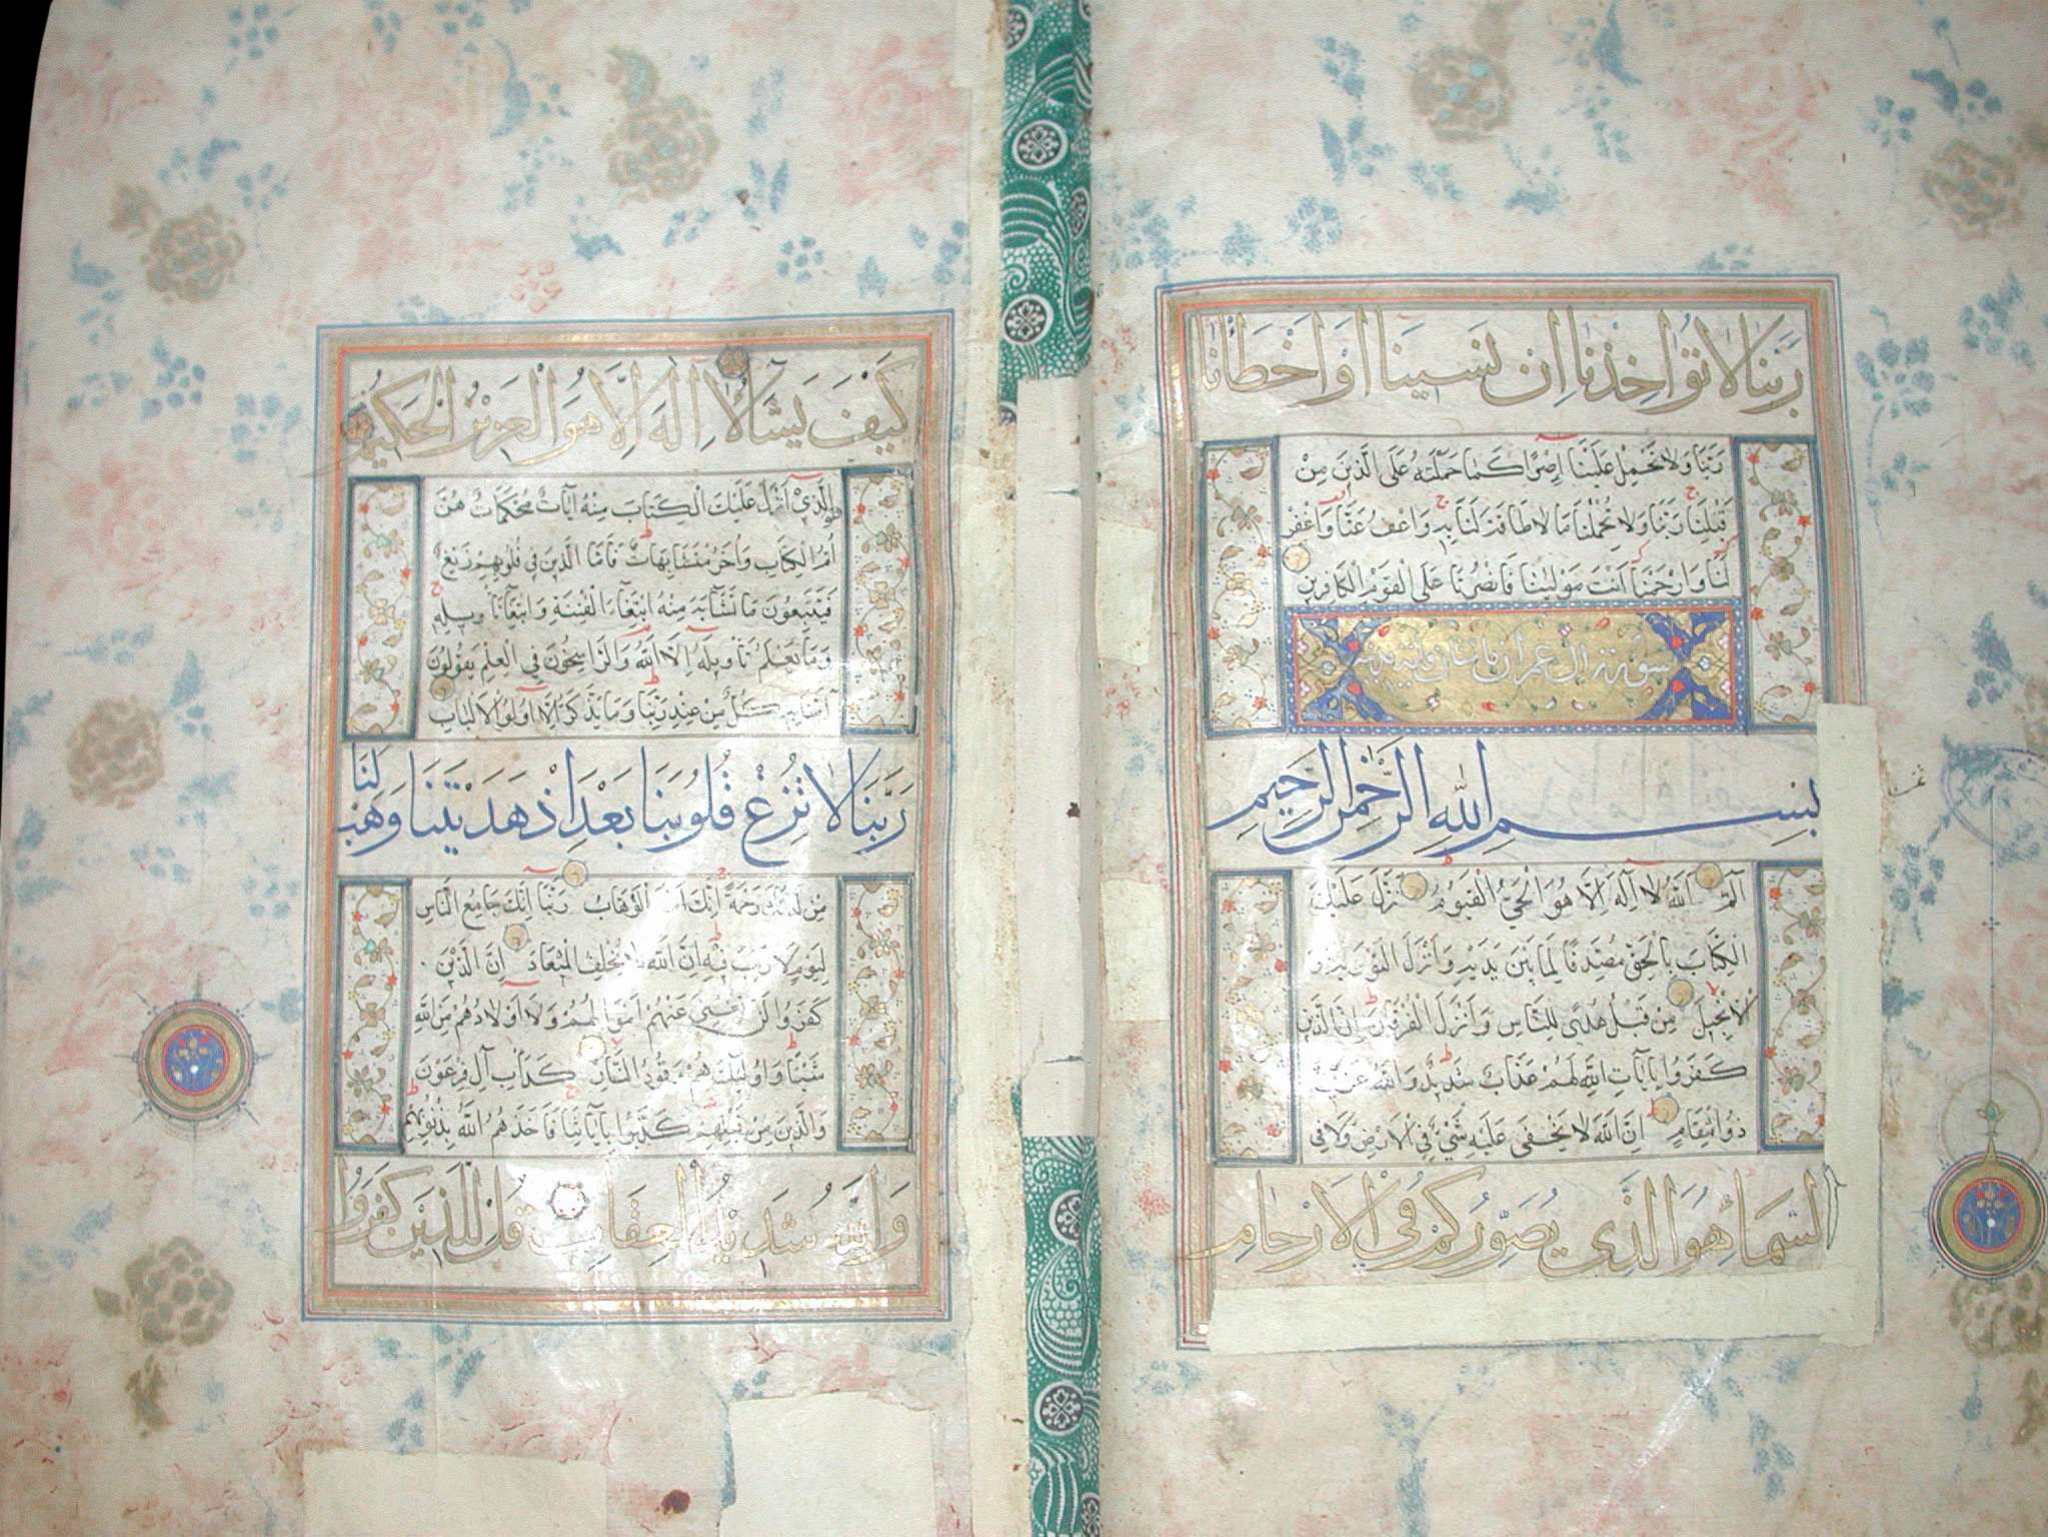 رَبَّنَا لَا تُوَاخِذْنَا اِنْ نَسِينَا اَوْ اَخْطَأْنَا
رَبَّنَا وَلَا تَحْمِلْ عَلَيْنَا اِصْرًا كَمَا حَمَلْتَهُ عَلَى الَّذِينَ مِنْ
قَبْلِنَا رَبَّنَا وَلَا تُحَمِّلْنَا مَا لَا طَاقَةَ لَنَا بِهِ وَاعْفُ عَنَّا وَاغْفِرْ
لَنَا وَارْحَمْنَا اَنْتَ مَوْلَينَا فَانْصُرْنَا عَلَى الْقَوْمِ الْكَافِرِينَ
سورة ال عمران مائتان اية
بِسْمِ اللَّهِ الرَّحْمٰنِ الرَّحِيمِ
الٓمٓ اَللَّهُ لَا اِلٰهَ اِلَّا هُوَ الْحَيُّ الْقَيُّومُ نَزَّلَ عَلَيْكَ
الْكِتَابَ بِالْحَقِّ مُصَدِّقًا لِمَا بَيْنَ يَدَيْهِ وَاَنْزَلَ التَّوْرٰيةَ وَ
الْاِنْجِيلَ مِنْ قَبْلُ هُدًى لِلنَّاسِ وَاَنْزَلَ الْفُرْقَانَ اِنَّ الَّذِينَ
كَفَرُوا بِاٰيَاتِ اللَّهِ لَهُمْ عَذَابٌ شَدِيدٌ وَاللَّهُ عَزِيزٌ
ذُو انْتِقَامٍ اِنَّ اللَّهَ لَا يَخْفَى عَلَيْهِ شَيْءٌ فِي الْاَرْضِ وَلَا فِي
السَّمَاءِ هُوَ الَّذِي يُصَوِّرُكُمْ فِي الْاَرْحَامِ
كَيْفَ يَشَاءُ لَا اِلٰهَ اِلَّا هُوَ الْعَزِيزُ الْحَكِيمُ
هُوَ الَّذِي اَنْزَلَ عَلَيْكَ الْكِتَابَ مِنْهُ اٰيَاتٌ مُحْكَمَاتٌ هُنَّ
اُمُّ الْكِتَابِ وَاُخَرُ مُتَشَابِهَاتٌ فَاَمَّا الَّذِينَ فِي قُلُوبِهِمْ زَيْغٌ
فَيَتَّبِعُونَ مَا تَشَابَهَ مِنْهُ ابْتِغَاءَ الْفِتْنَةِ وَابْتِغَاءَ تَاْوِيلِهِ
وَمَا يَعْلَمُ تَاْوِيلَهُ اِلَّا اللَّهُ وَالرَّاسِخُونَ فِي الْعِلْمِ يَقُولُونَ
اٰمَنَّا بِهِ كُلٌّ مِنْ عِنْدِ رَبِّنَا وَمَا يَذَّكَّرُ اِلَّا اُولُوا الْاَلْبَابِ
رَبَّنَا لَا تُزِغْ قُلُوبَنَا بَعْدَ اِذْ هَدَيْتَنَا وَهَبْ لَنَا
مِنْ لَدُنْكَ رَحْمَةً اِنَّكَ اَنْتَ الْوَهَّابُ رَبَّنَا اِنَّكَ جَامِعُ النَّاسِ
لِيَوْمٍ لَا رَيْبَ فِيهِ اِنَّ اللَّهَ لَا يُخْلِفُ الْمِيعَادَ اِنَّ الَّذِينَ
كَفَرُوا لَنْ تُغْنِيَ عَنْهُمْ اَمْوَالُهُمْ وَلَا اَوْلَادُهُمْ مِنَ اللَّهِ
شَيْئًا وَاُولٰئِكَ هُمْ وَقُودُ النَّارِ كَدَاْبِ اٰلِ فِرْعَوْنَ
وَالَّذِينَ مِنْ قَبْلِهِمْ كَذَّبُوا بِاٰيَاتِنَا فَاَخَذَهُمُ اللَّهُ بِذُنُوبِهِمْ
وَاللَّهُ شَدِيدُ الْعِقَابِ قُلْ لِلَّذِينَ كَفَرُوا